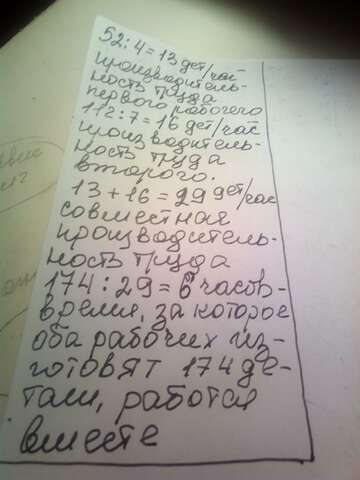 52:4=13 дет/час-
производитель-
ность труда
первого рабочего
112:7=16 дет/час
производитель-
ность труда
второго.
13+16=29 дет/час
совместная
производитель-
ность труда
174:29=6 часов-
время, за которое
оба рабочих из-
готовят 174 де-
тали, работая
вместе